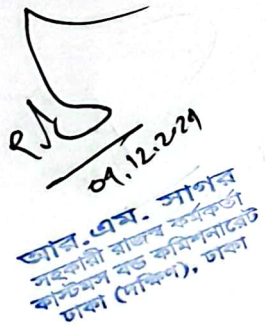 আর. এম. সাগর
সহকারী রাজস্ব কর্মকর্তা
কাস্টমস বন্ড কমিশনারেট
ঢাকা (দক্ষিণ), ঢাকা